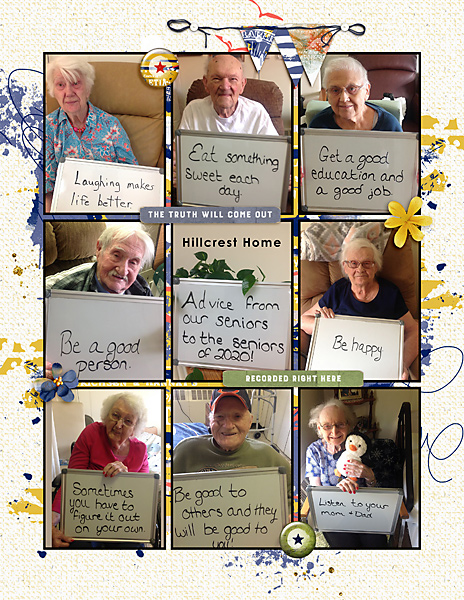 Laughing makes
life better
Eat something
sweet each
day.
Get a good
education and
a good job
THE TRUTH WILL COME OUT
Hillcrest Home
Be a good
person.
Advice from
our seniors
to the seniors
of 2020!
Be happy
RECORDED RIGHT HERE
Sometimes
you have to
figure it out
on your own.
Be good to
others and they
will be good to
you
Listen to your
mom & Dad